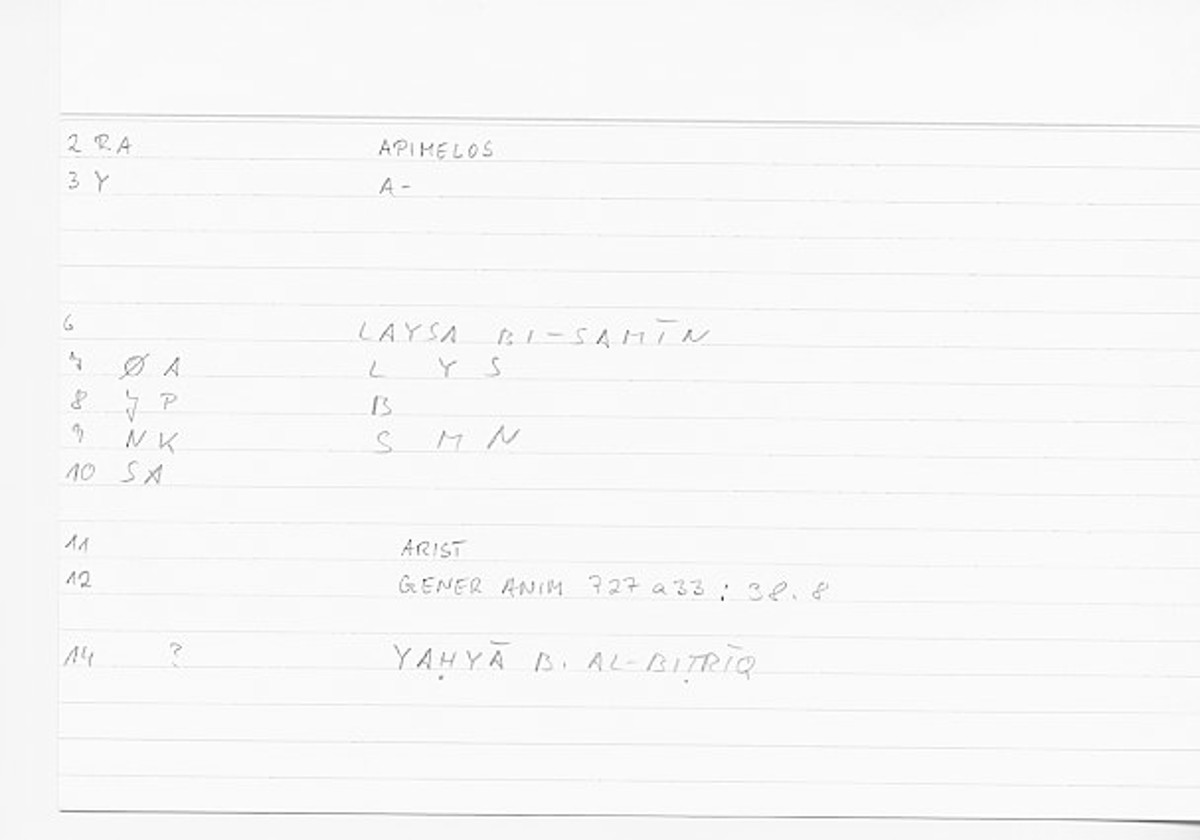 2 RA APIMELOS
3 Y A-
6 LAYSA BI-SAMĪN
7 Ø A L Y S
8 J P B
9 N K S M N
10 SA
11 ARIST
12 GENER ANIM 727 a33 : 38.8
14 ? YAḤYĀ B. AL-BIṬRĪQ